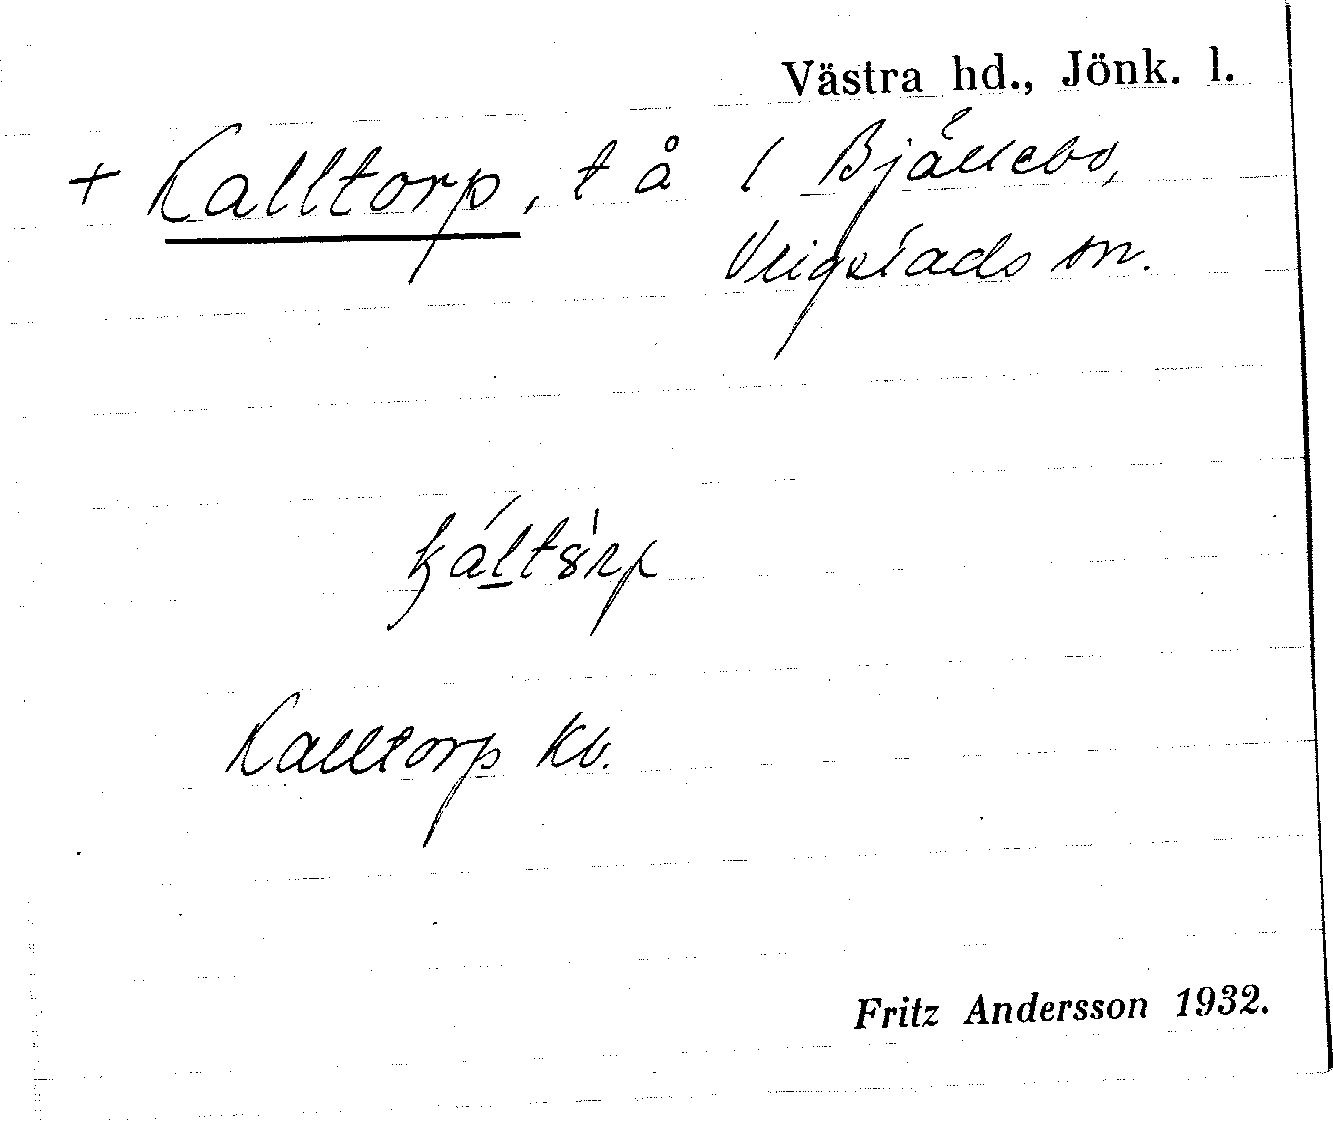 Västra hd., Jönk. l.
+ Kalltorp, t å i Bjällebo,
Vrigstads sn.
káltòrp
Kalltorp Kb.
Fritz Andersson 1932.